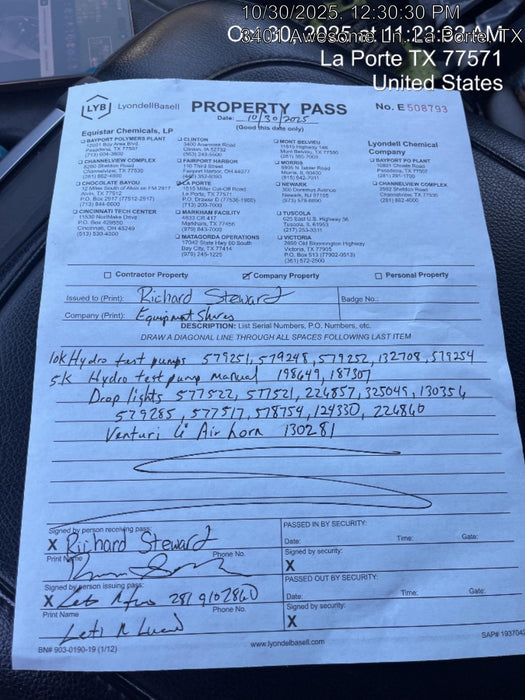 10/30/2025, 12:30:30 PM
Oct 30, 2025 at 11:23:32 AM
8401 Awesome Ln, La Porte, TX
La Porte TX 77571
United States
LYB LyondellBasell PROPERTY PASS No. E508793
Date: 10/30/2025
(Good this date only)
Equistar Chemicals, LP
BAYPORT POLYMERS PLANT
CHANNELVIEW COMPLEX
CHOCOLATE BAYOU
CINCINNATI TECH CENTER
CLINTON
FAIRPORT HARBOR
LA PORTE
MARKHAM FACILITY
MATAGORDA OPERATIONS
MONT BELVIEU
MORRIS
NEWARK
TUSCOLA
VICTORIA
Lyondell Chemical
Company
BAYPORT PO PLANT
CHANNELVIEW COMPLEX
Contractor Property Company Property Personal Property
Issued to (Print): Richard Steward Badge No.:
Company (Print): Equipment Shares
DESCRIPTION: List Serial Numbers, P.O. Numbers, etc.
DRAW A DIAGONAL LINE THROUGH ALL SPACES FOLLOWING LAST ITEM
10k Hydro test pumps 579251, 579248, 579252, 132708, 579254
5k Hydro test pump manual 198649, 187307
Drop lights 577522, 577521, 224857, 325049, 130354
579285, 577517, 578754, 124330, 224860
Venturi Air horn 130281
Signed by person receiving pass: PASSED IN BY SECURITY:
X Richard Steward Date: Time: Gate:
Print Name Phone No. Signed by security:
X
Signed by person issuing pass: PASSED OUT BY SECURITY:
X 281 9102860 Date: Time: Gate:
Print Name Phone No. Signed by security:
X
BN# 903-0190-19 (1/12) www.lyondellbasell.com SAP# 1937042